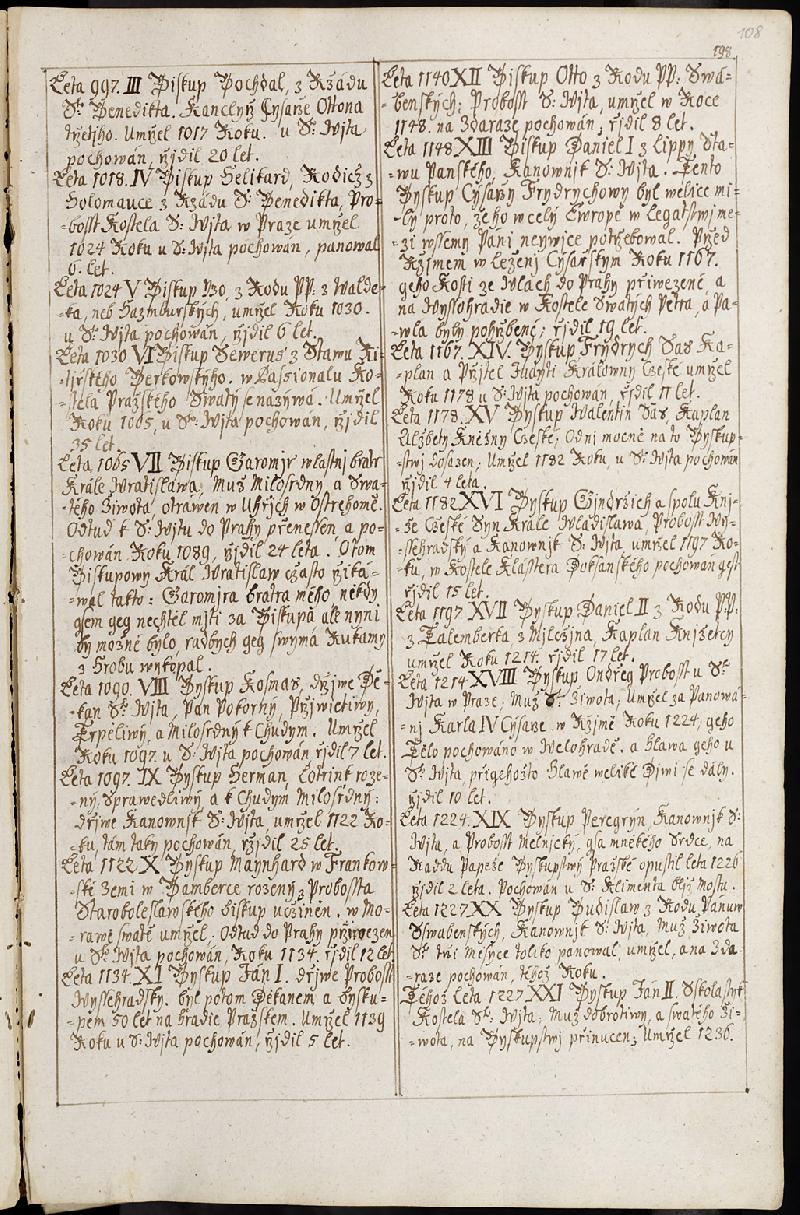 108
198
Leta 997. III Biskup Bochdal, z Ržádu
S: Benedikta. Kanclyrž Cysarže Ottona
tržetjho. Umržel 1017 Roku. u S: Wjta
pochowán, ržjdil 20 let.
Leta 1018. IV Biskup Helikard, Rodicž z
Holomauce z Ržádu S: Benedikta, Pro-
-bosst Kostela S: Wjta w Praze umržel
1024 Roku u S: Wjta pochowán, panowal
6. let.
Leta 1024 V Biskup Yzo, z Rodu PP. z Walde-
-ka, neb Hazmburských, umržel Roku 1030.
u S: Wjta pochowán, ržjdil 6 let.
Leta 1030 VI Biskup Sewerus z Stawu Ri-
-tjržského Berkowského. w Passionalu Ko-
-stela Pražského Swatý se nazýwá. Umržel
Roku 1065, u S: Wjta pochowán, ržjdil
35 let.
Leta 1065 VII Biskup Gžaromjr wlastnj bratr
Krále Wratislawa, Muž Milosrdný a Swa-
-tého Žiwota, otráwen w Uhržjch w Ostrehomě.
Odtud k S: Wjtu do Prahy přenessen a po-
-chowán Roku 1089, ržjdil 24 leta. O tom
Biskupowy Král Wratislaw cžasto ržiká-
-wal takto: Gžaromjra bratra mého někdy
gsem geg nechtěl mjti za Biskupa ale nyni
by možné bylo, radbych geg swýma Rukamy
z Hrobu wykopal.
Leta 1090. VIII Byskup Kosmas, držjwe Dě-
-kan S: Wjta, Pán Pokorný, Pržjwětiwý,
Trpěliwý, a Milosrdný k Chudým. Umržel
Roku 1097 u S: Wjta pochowán ržjdil 7 let.
Leta 1097. IX Byskup Herman, Lotrink roze-
-ný, Sprawedliwý, a k Chudym Milosrdný:
držjwe Kanownjk S: Wjta, umržel 1122 Ro-
-ku, tám taky pochowán, ržjdil 25 let.
Leta 1122 X Byskup Maynhard w Frankow-
-ské Zemi w Bamberce rozený, z Probossta
Staroboleslawského biskup učžiněn. w Mo-
-rawe swatě umržel. Odtud do Prahy přiwezen
u S: Wjta pochowán, Roku 1134. ržjdil 12 let.
Leta 1134. XI Byskup Ján I. držjwe Probosst
Wyssehradský. byl potom Děkanem a bysku-
-pem 50 let na hradie Pražském. Umržel 1139
Roku u S: Wjta pochowán, ržjdil 5 let.
Leta 1140 XII Biskup Otto z Rodu PP: Swá-
-benských; Probosst S: Wjta, umržel w Roce
1148. na Zdaraze pochowán, ržjdil 8 let.
Leta 1148 XIII Biskup Daniel I z Lippy Sta-
-wu Panského, Kanownjk S: Wjta. Tento
Byskup Cysaržy Frydrychowy byl welice mi-
-lý proto, že ho w celý Ewropě w Legatstwj me-
-zi wssemy Páni neywjce potržebowal. Pržed
Ržjmem w Leženj Cysarž̌ským Roku 1167.
geho Kosti ze Wlách do Prahy přiwezené, a
na Wyssohradie w Kostele Swatých Petra, a Pa-
-wla byly pohržbené; ržjdil 19 let.
Leta 1167. XIV. Byskup Frydrych Sas Ka-
-plan a Přjtel Judyty Králowny Cžeské umržel
Roku 1178 u S: Wjta pochowán, ržjdil 11 let.
Leta 1178. XV Byskup Walentin Sas, Kaplan
Alžběty Kněžny Cžeské; Od nj mocně na to Byskup-
-stwj dosazen, Umržel 1182 Roku, u S: Wjta pochowán
ržjdil 4 leta.
Leta 1182 XVI Byskup Gžindržich a spolu Knj-
-že Cžeské Syn Krále Wladislawa, Probosst Wy-
-ssehradský a Kanownjk S: Wjta, umržel 1197 Ro-
-ku, w Kostele Klasstera Doksanského pochowán gest
ržjdil 15 let.
Leta 1197 XVII Byskup Daniel II z Rodu PP.
z Talemberka z Milosjna, Kaplan Knjžetcy
umržel Roku 1214. ržjdil 17 let.
Leta 1214 XVIII Byskup Ondřeg Probosst u S:
Wjta w Praze, Muž S: Žiwota; Umržel za Panowá-
-nj Karla IV Cysarže w Ržjmě Roku 1224, geho
Tělo pochowáno w Welohradě. a hlawa geho u
S: Wjta přigehožto Hlawě weliké Diwi se dály.
ržjdil 10 let.
Leta 1224. XIX Byskup Peregryn, Kanownjk S:
Wjta, a Probosst Mělnický, gsa mněkého Srdce, na
Raddu Papeže Byskupstwj Pražské opustil leta 1226
ržjdil 2 leta. Pochowán u S: Klimenta bljž Mostu.
Leta 1227 XX Byskup Budislaw z Rodu Panuw
Sswabenských, Kanownjk S: Wjta, Muž Žiwota
S: tři Mesyce toliko panowal, umržel, a na Zda-
-raze pochowán, téhož Roku.
Téhož Leta 1227. XXI Byskup Ján II. Sskolastyk
Kostela S: Wjta; Muž dobrotiwý, a swatého Ži-
-wota, na Byskupstwj přinucen; Umržel 1236.